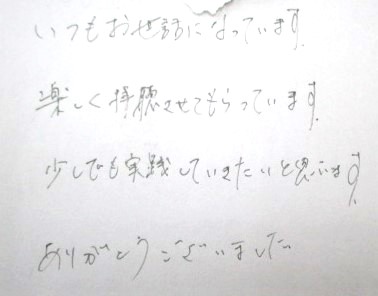 いつもお世話になっています。
楽しく拝聴させてもらっています。
少しでも実践していきたいと思います。
ありがとうございました